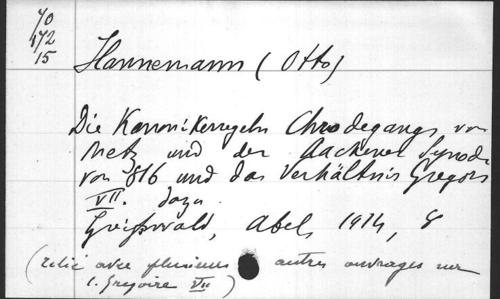 70
472
15
Hannemann (Otto)
Die Kanonikerregeln Chrodegangs von
Metz und der Aachener Synode
von 816 und das Verhältnis Gregors
VII. dazu
Greifswald, Abel 1914, 8
(relié avec plusieurs autres ouvrages sur
s. Gregoire VII)